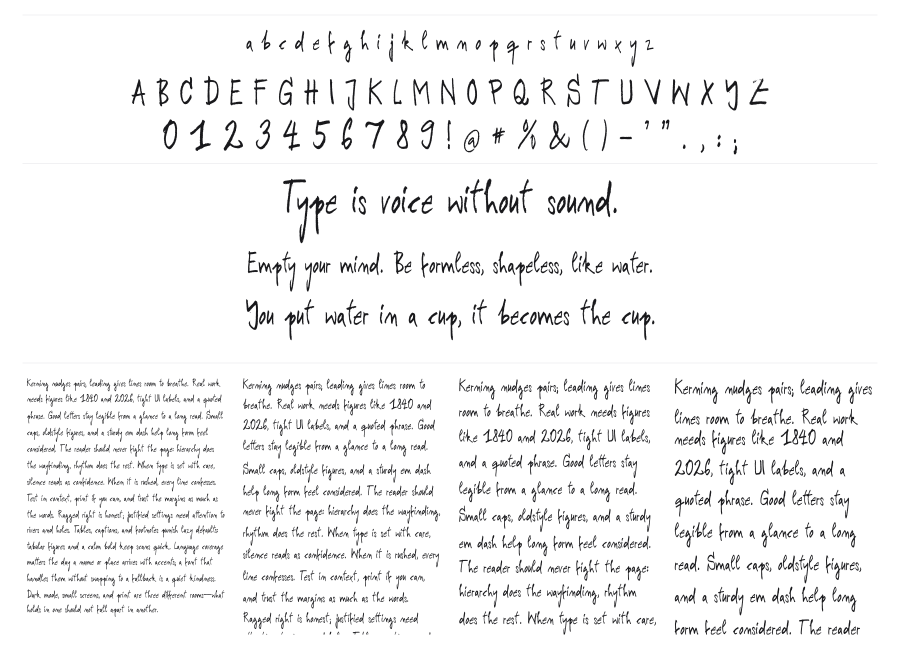 a b c d e f g h i j k l m n o p q r s t u v w x y z
A B C D E F G H I J K L M N O P Q R S T U V W X Y Z
0 1 2 3 4 5 6 7 8 9 ! @ # % & ( ) – ' " . , : ;
Type is voice without sound.
Empty your mind. Be formless, shapeless, like water.
You put water in a cup, it becomes the cup.
Kerning nudges pairs; leading gives lines room to breathe. Real work
needs figures like 1840 and 2026, tight UI labels, and a quoted
phrase. Good letters stay legible from a glance to a long read. Small
caps, oldstyle figures, and a sturdy em dash help long form feel
considered. The reader should never fight the page: hierarchy does
the wayfinding, rhythm does the rest. When type is set with care,
silence reads as confidence. When it is rushed, every line confesses.
Test in context, print if you can, and trust the margins as much as
the words. Ragged right is honest; justified settings need attention to
rivers and holes. Tables, captions, and footnotes punish lazy defaults
tabular figures and a calm bold keep scans quick. Language coverage
matters the day a name or place arrives with accents; a font that
handles them without swapping to a fallback is a quiet kindness.
Dark mode, small screens, and print are three different rooms—what
holds in one should not fall apart in another.
Kerning nudges pairs; leading gives lines room to
breathe. Real work needs figures like 1840 and
2026, tight UI labels, and a quoted phrase. Good
letters stay legible from a glance to a long read.
Small caps, oldstyle figures, and a sturdy em dash
help long form feel considered. The reader should
never fight the page: hierarchy does the wayfinding,
rhythm does the rest. When type is set with care,
silence reads as confidence. When it is rushed, every
line confesses. Test in context, print if you can,
and trust the margins as much as the words.
Ragged right is honest; justified settings need
Kerning nudges pairs; leading gives lines
room to breathe. Real work needs figures
like 1840 and 2026, tight UI labels,
and a quoted phrase. Good letters stay
legible from a glance to a long read.
Small caps, oldstyle figures, and a sturdy
em dash help long form feel considered.
The reader should never fight the page:
hierarchy does the wayfinding, rhythm
does the rest. When type is set with care,
Kerning nudges pairs; leading gives
lines room to breathe. Real work
needs figures like 1840 and
2026, tight UI labels, and a
quoted phrase. Good letters stay
legible from a glance to a long
read. Small caps, oldstyle figures,
and a sturdy em dash help long
form feel considered. The reader